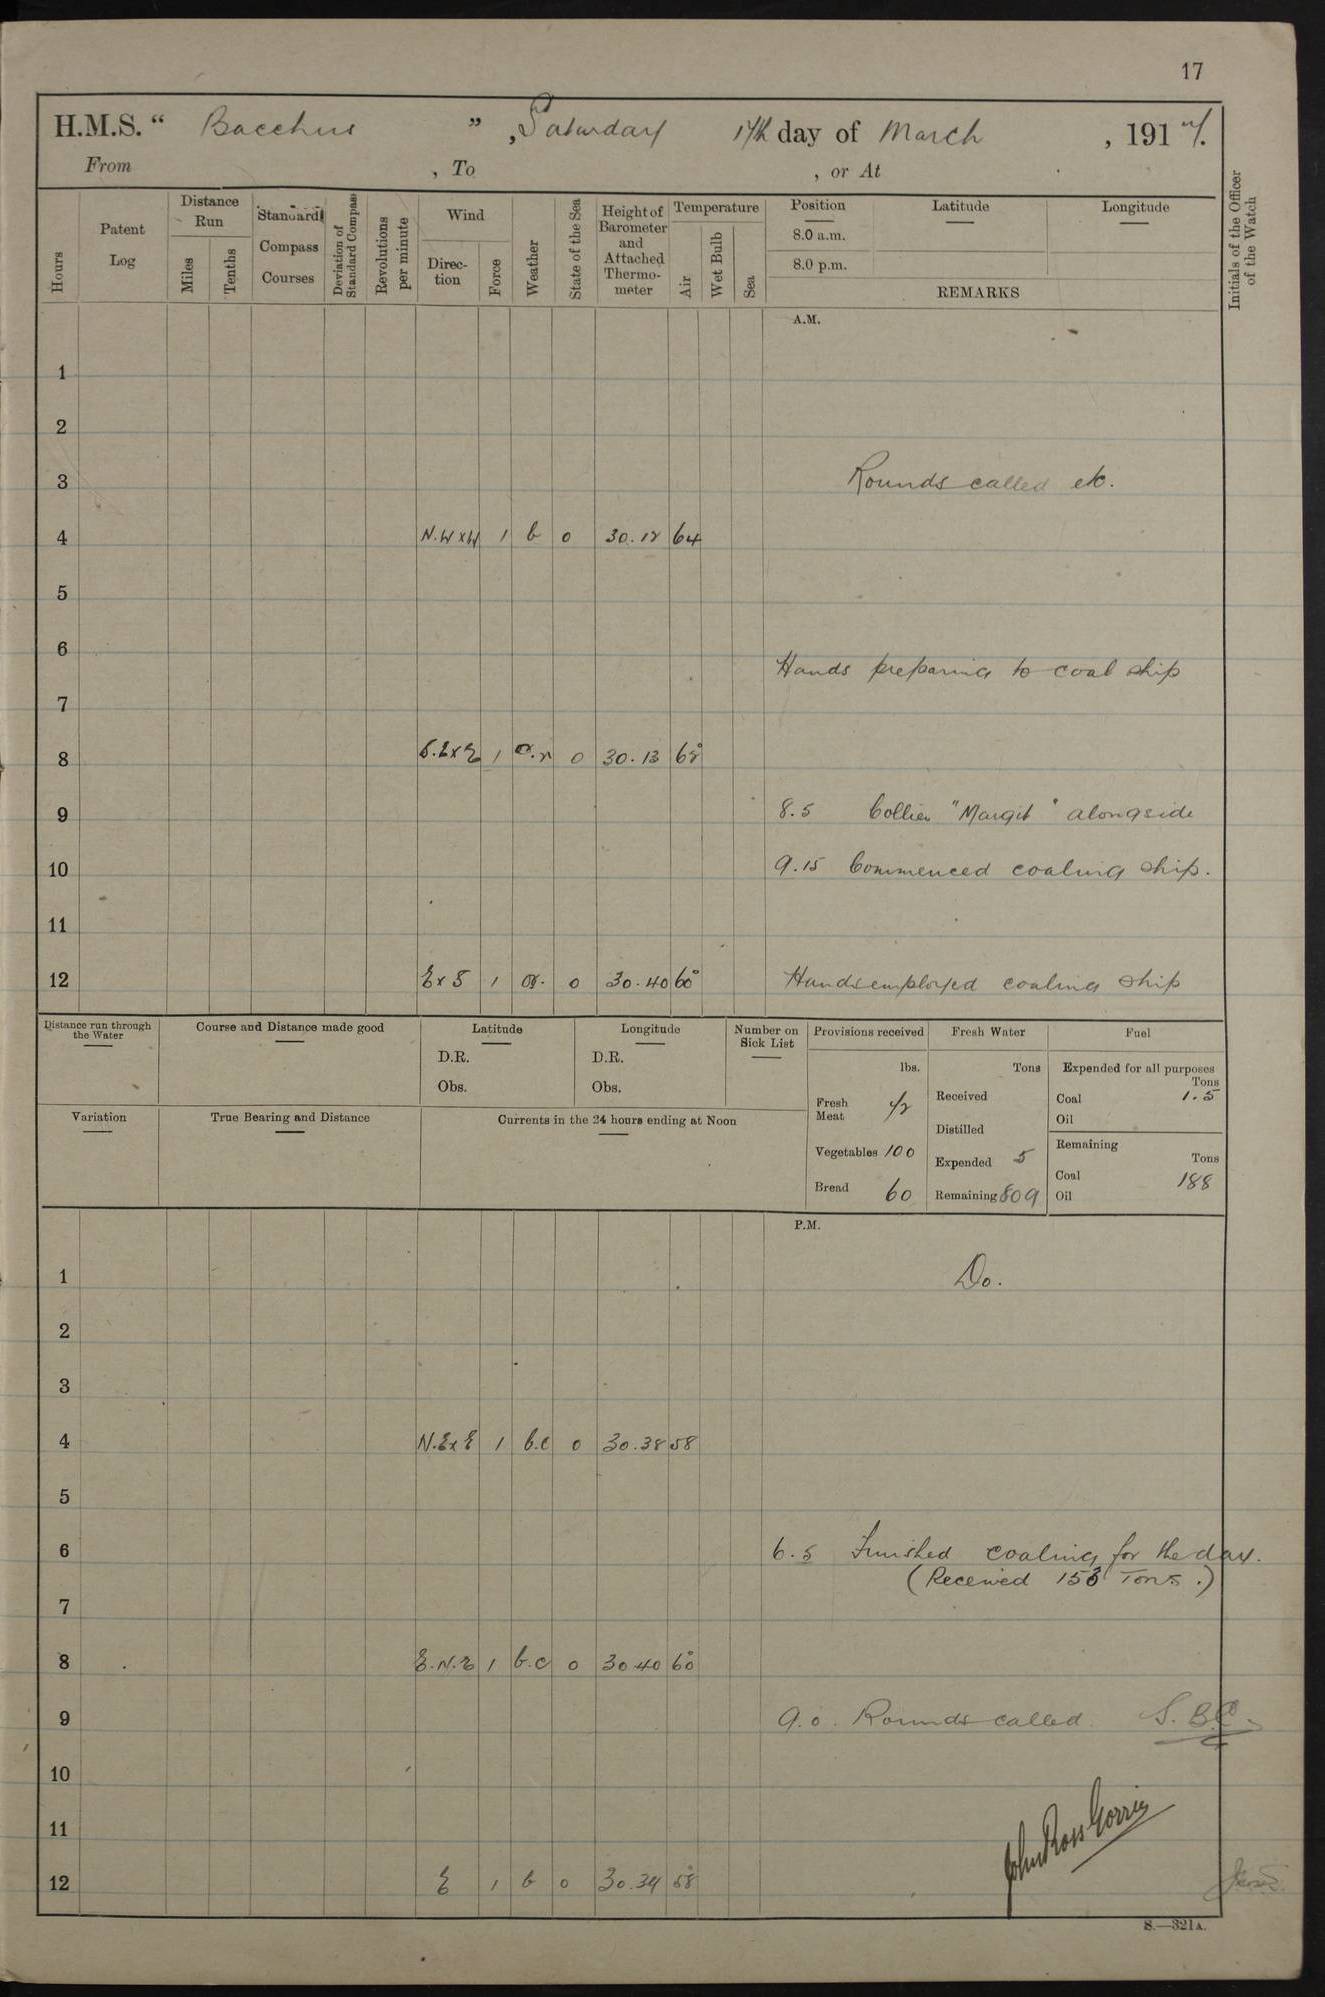 17
H.M.S. “ Bacchus ” , Saturday 17th day of March , 1917.
From , To , or At
Hours
Patent Log
Distance Run
Miles
Tenths
Standard Compass Courses
Deviation of Standard Compass
Revolutions per minute
Wind
Direc-tion
Force
Weather
State of the Sea
Height of Barometer and Attached Thermo-meter
Temperature
Air
Wet Bulb
Sea
Position Latitude Longitude
8.0 a.m.
8.0 p.m.
REMARKS
Initials of the Officer of the Watch
A.M.
1
2
3 Rounds called etc.
4 N.W x W 1 b 0 30.12 64
5
6
Hands preparing to coal ship
7
8 S.E x E 1 0 30.13
9 8.5 Collier "Margit" alongside
10 9.15 Commenced coaling ship.
11
12 E x S 1 0 30.40 60° Hands employed coaling ship
Distance run through the Water
Course and Distance made good
Latitude
D.R.
Obs.
Longitude
D.R.
Obs.
Number on Sick List
Provisions received
lbs.
Fresh Meat
Vegetables 100
Bread 60
Fresh Water
Tons
Received
Distilled
Expended 5
Remaining 809
Fuel
Expended for all purposes
Tons
Coal 1.5
Oil
Remaining
Tons
Coal 188
Oil
Variation
True Bearing and Distance
Currents in the 24 hours ending at Noon
P.M.
1 Do.
2
3
4 N.E x E 1 b.c 0 30.38 58
5
6 6.5 Finished coaling for the day.
(Received 153 Tons.)
7
8 E.N.E 1 b.c 0 30.40 60°
9 9.0. Rounds called. S.B.C.
10
11
John Ross Gorrie
12 E 1 b 0 30.34 58°
S.—321A.